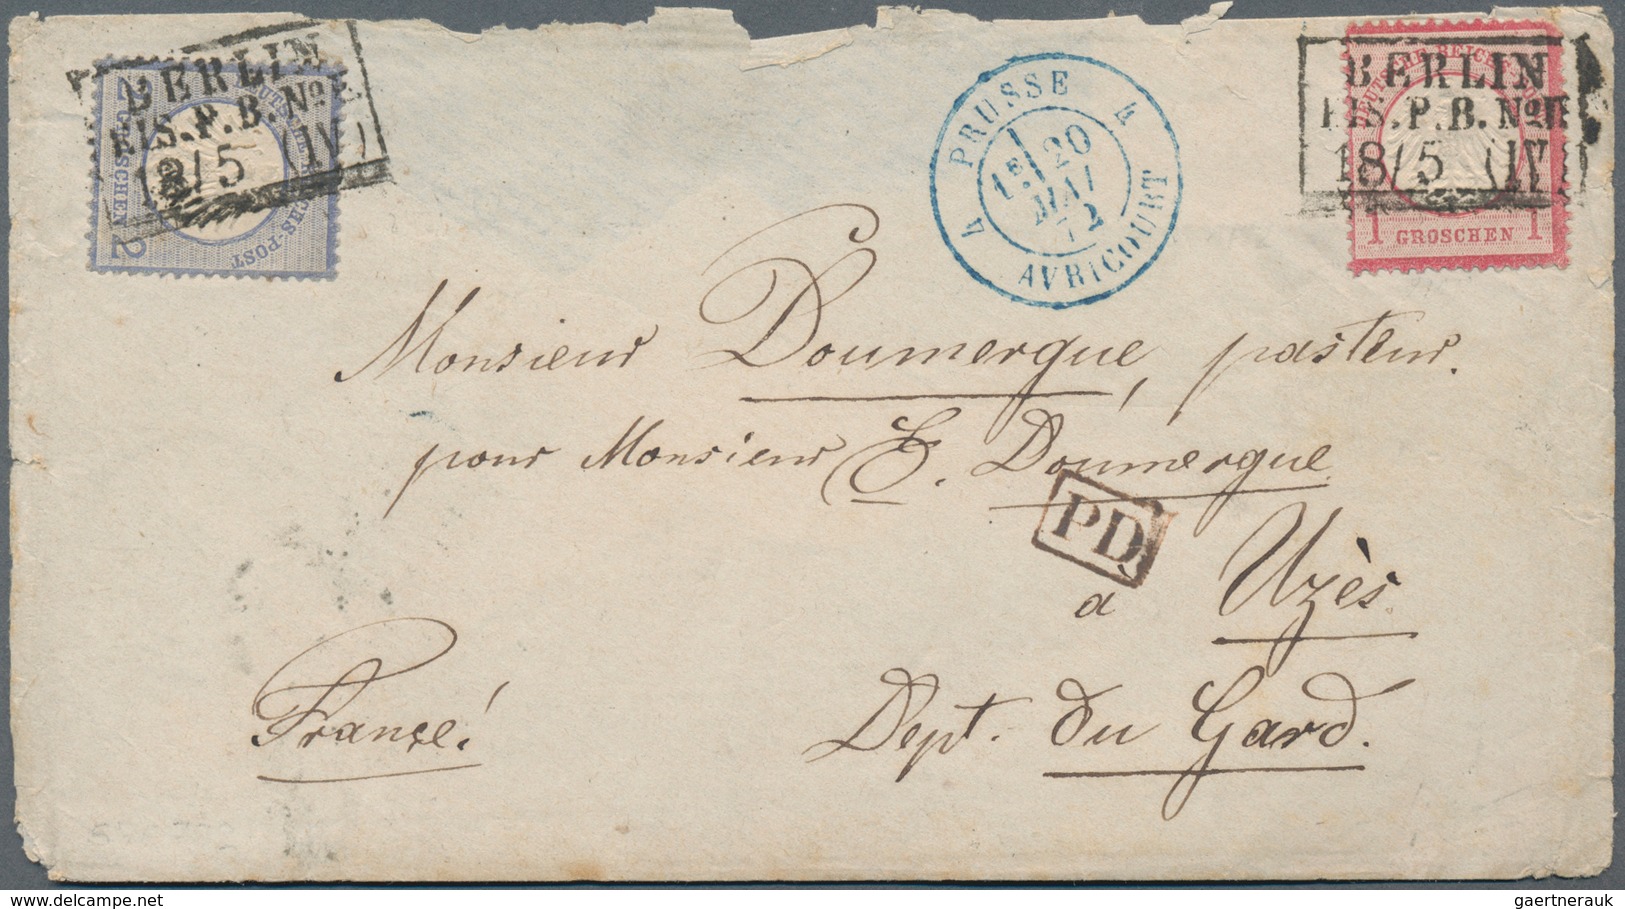 BERLIN
EIS.P.B.No
18/5 (IV)
2
GROSCHEN
2
REICHS-POST
4 PRUSSE 4
1E 20
MAI
72
AVRICOURT
DEUTSCHE REICHS-POST
BERLIN
EIS.P.B.No
18/5 (IV)
1 GROSCHEN 1
Monsieur Doumergue, pasteur.
pour Monsieur E. Doumergue
PD
à Uzès
France!
Dept. du Gard.
gaertnerauk